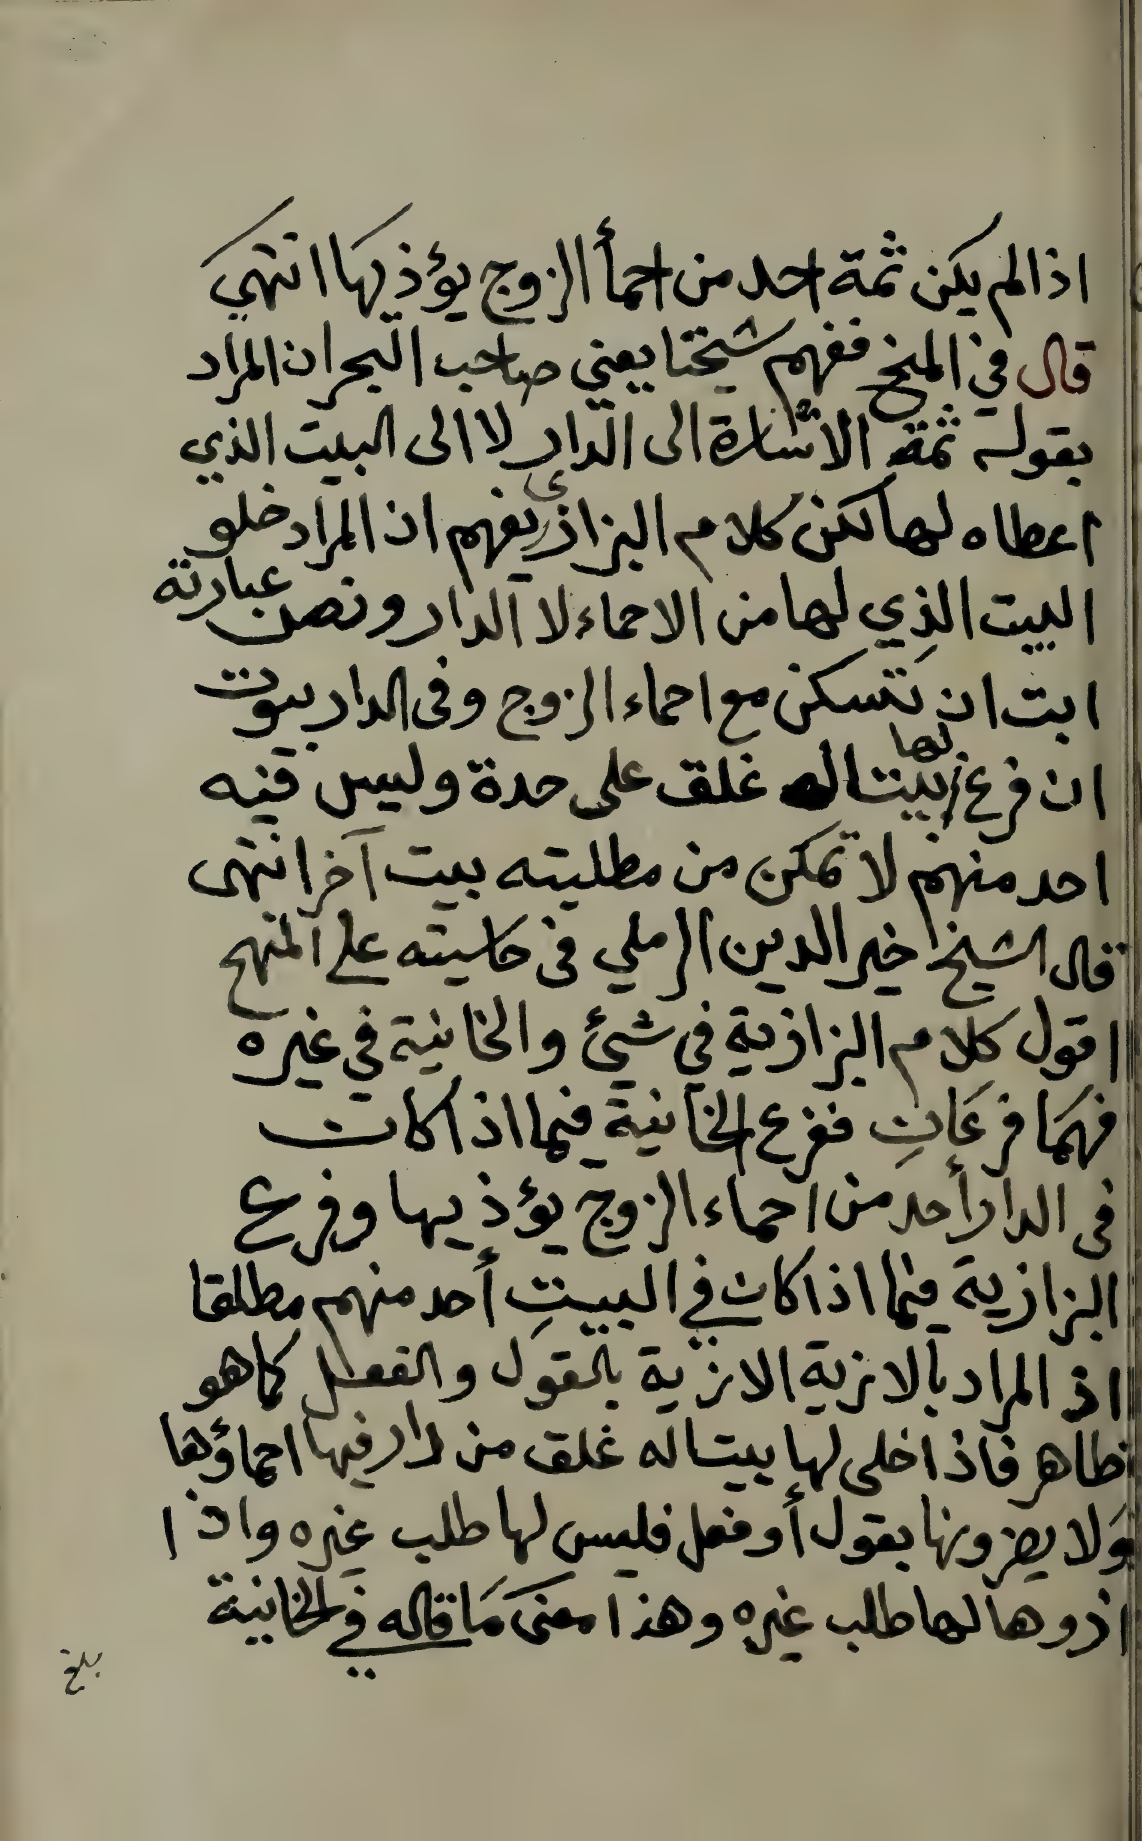 اذا لم يكن ثمة احد من احمأ الزوج يؤذيها انتهي
قال في المنح ففهم شيخنا يعني صاحب البحر ان المراد
بقوله ثمة الاشارة الى الدار لا الى البيت الذي
اعطاه لها لكن كلام البزازي يفهم ان المراد خلو
البيت الذي لها من الاحماء لا الدار ونص عبارته
ابت ان تسكن مع احماء الزوج وفى الدار بيوت
ان فرغ لها بيتا له غلق على حدة وليس فيه
احد منهم لا تمكن من مطلبته ببيت آخر انتهى
قال الشيخ خير الدين الرملي فى حاشيته على المنح
اقول كلام البزازية في شيئ والخانية في غيره
فهما فرعان ففرع الخانية فيما اذا كان
فى الدار أحد من احماء الزوج يؤذيها وفرع
البزازية فيما اذا كان في البيت أحد منهم مطلقا
اذ المراد بالازية الازية بالقول والفعل كما هو
ظاهر فاذا اخلى لها بيتا له غلق من دار فيها احماؤها
ولا يضرونها بقول أو فعل فليس لها طلب غيره واذا
اذوها لها طلب غيره وهذا معنى ما قاله في الخانية
بلغ